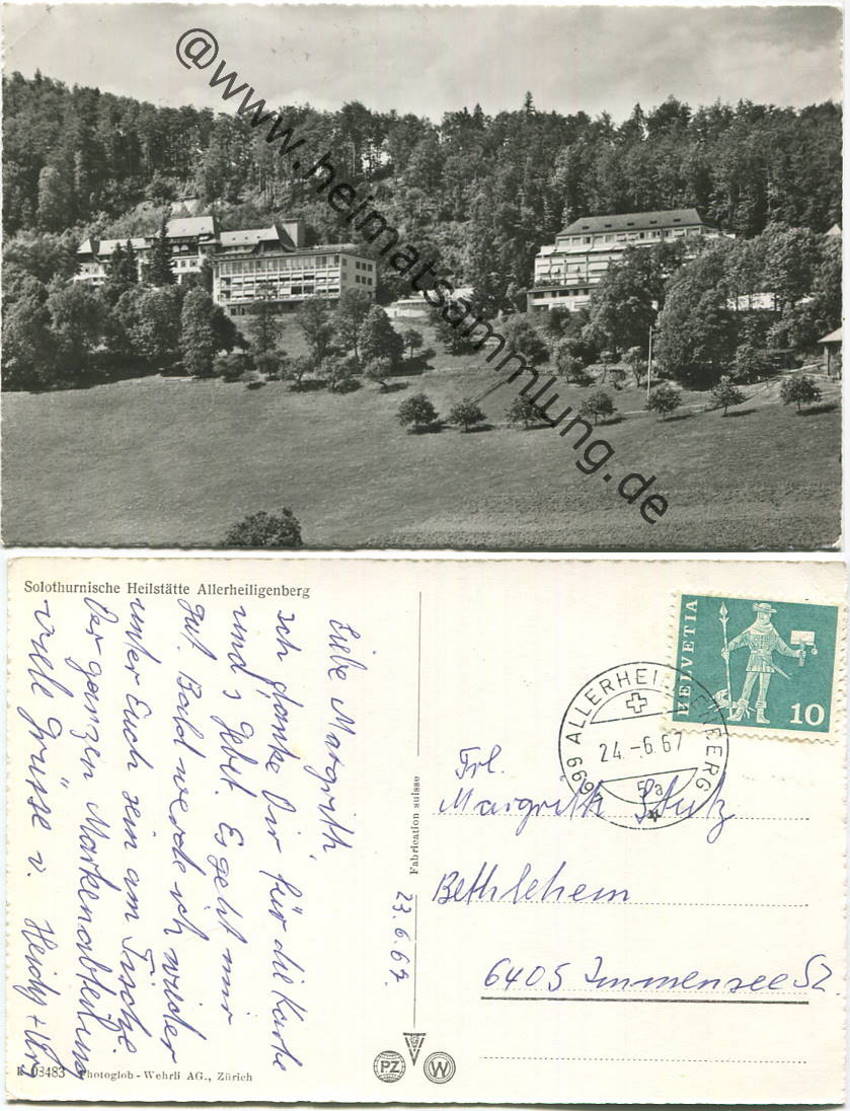 @www.heimatsammlung.de
Solothurnische Heilstätte Allerheiligenberg
Liebe Margrith,
ich danke Dir für die Karte
und s Gebet. Es geht mir
gut. Bald werde ich wieder
unter Euch sein am Tische.
Der ganzen Markenabteilung
viele Grüsse v. Heidy +
23.6.67.
Fabrication suisse
HELVETIA
10
24.-6.67
5a
Frl.
Margrith Stutz
Bethlehem
6405 Immensee SZ.
PZ
W
03483 Photoglob-Wehrli AG., Zürich